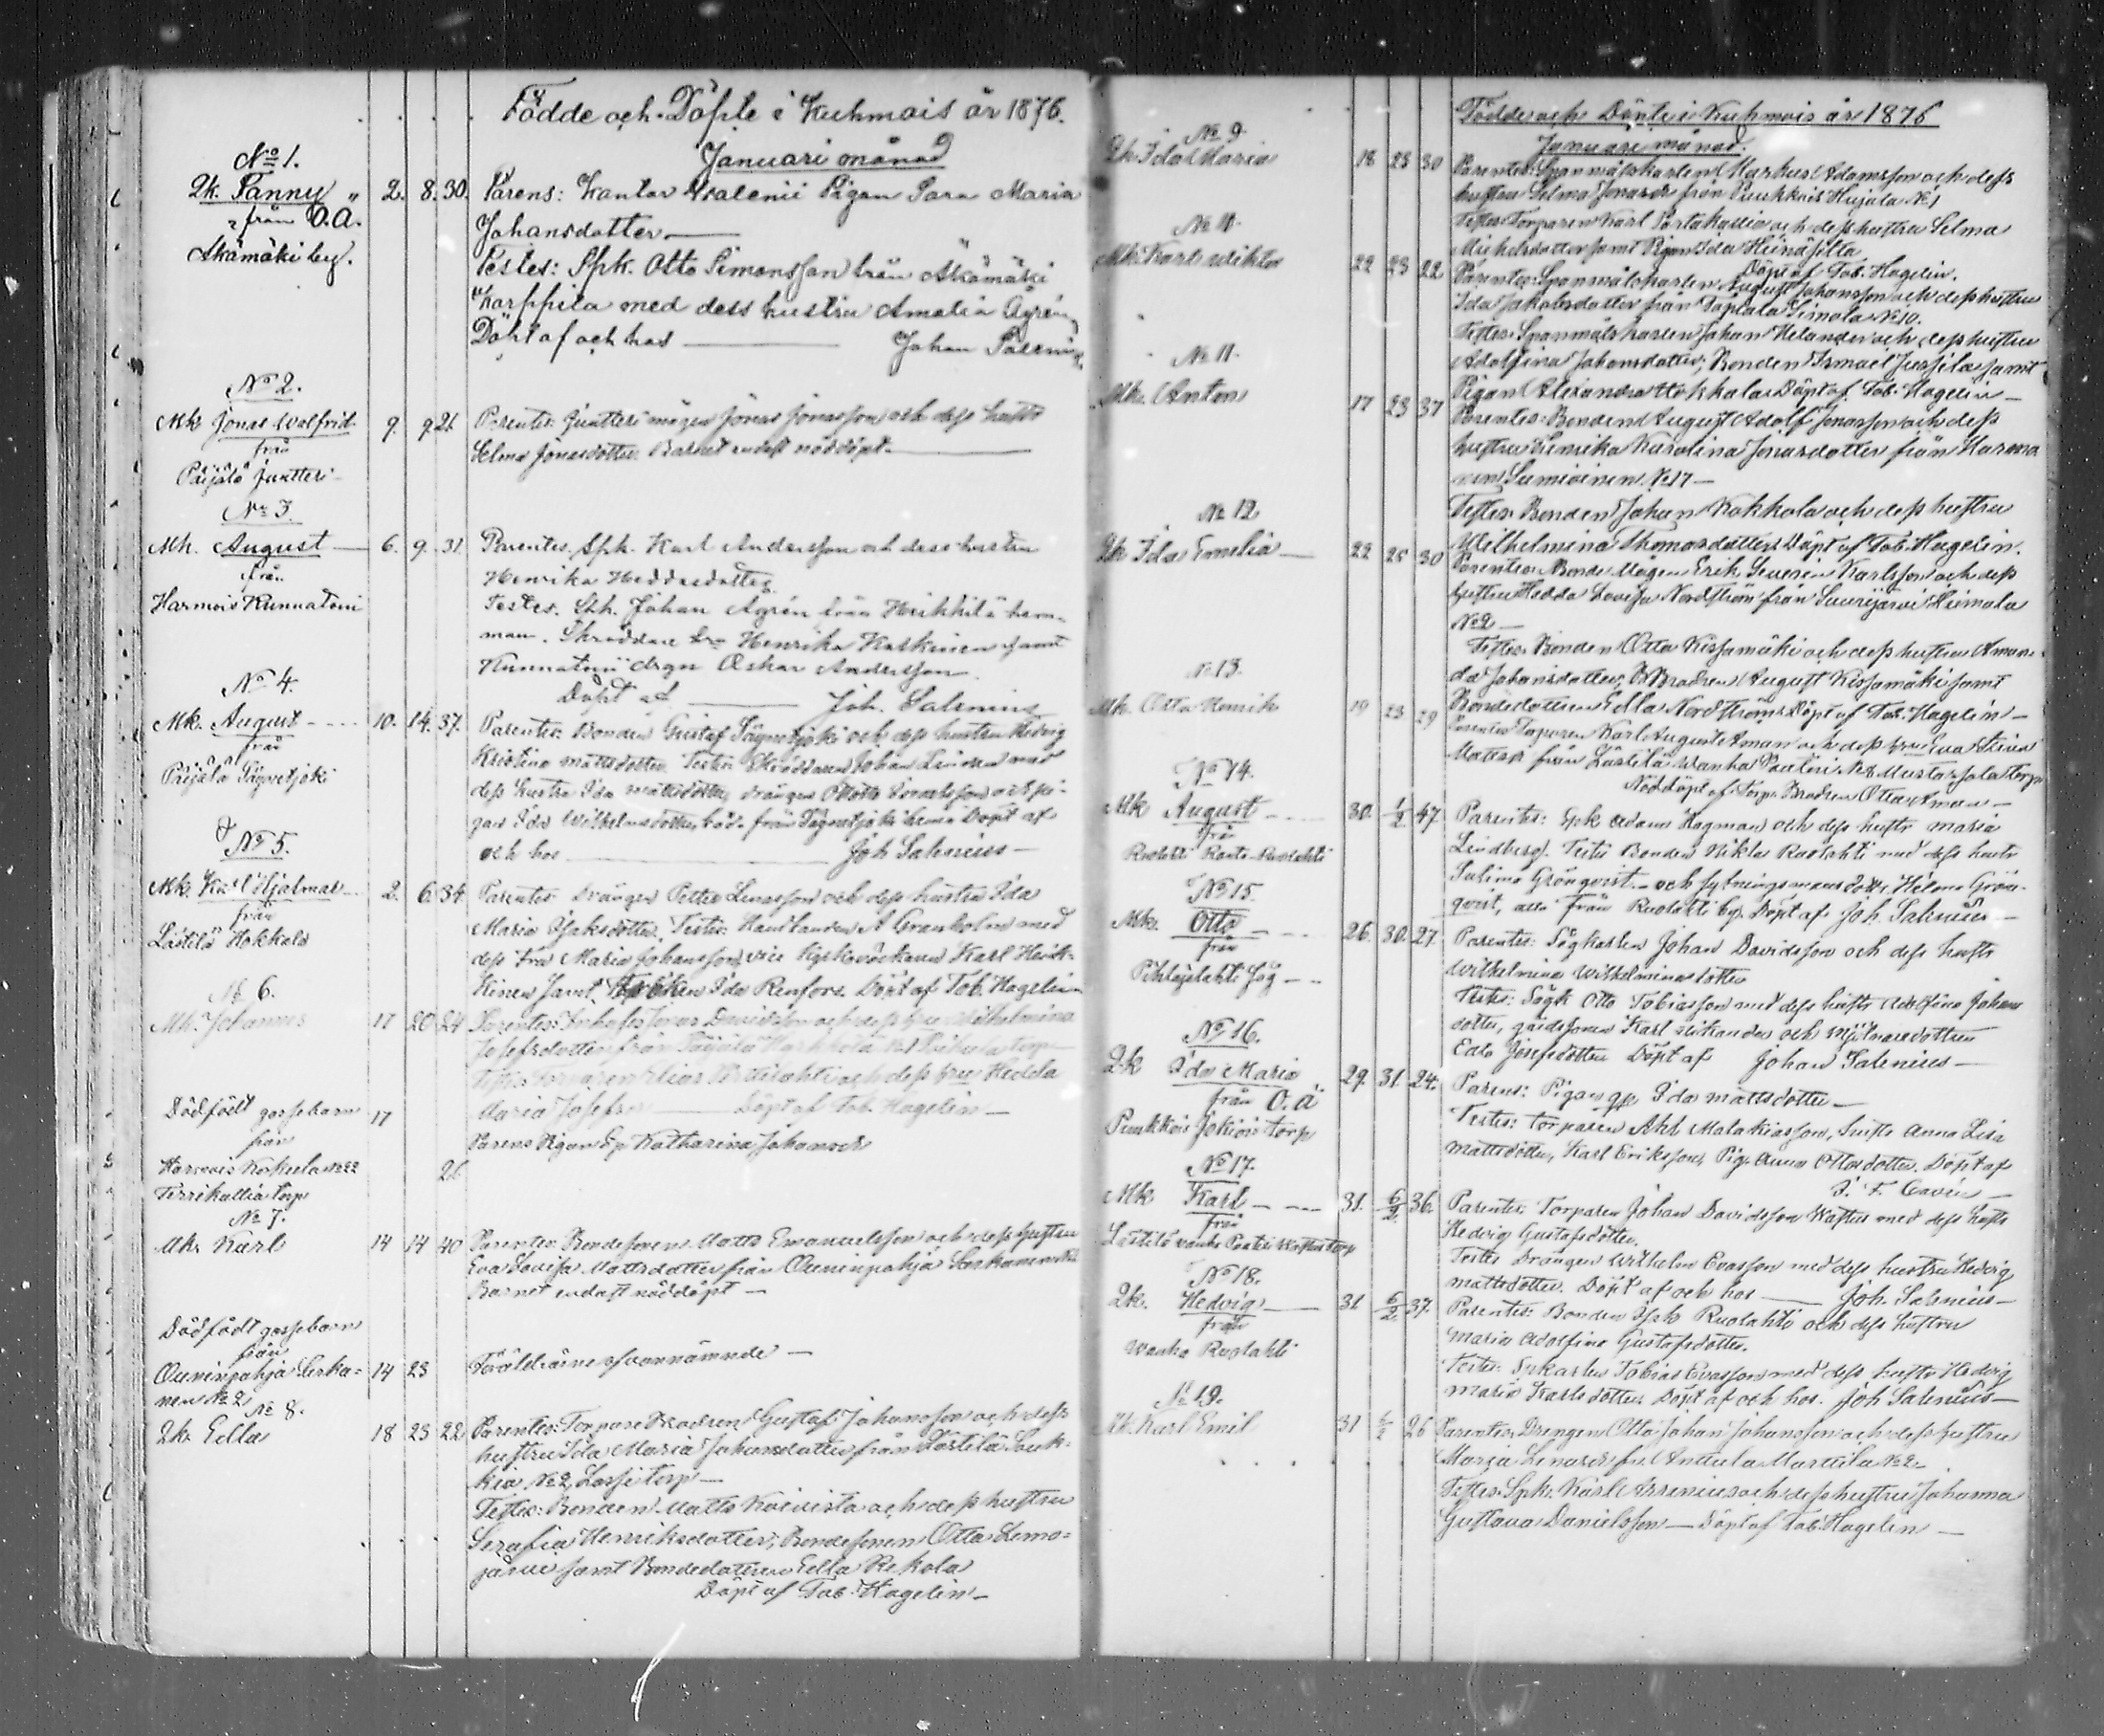 Födde och Döpte i Kuhmois år 1876.
Januari månad
No 1.
Qk. Fanny " 2. 8. 30. Parens: Kantor Pigan Sara Maria
från O.Ä. Johansdotter
Äkämäki by. Testes: Spk. Otto Simonsson från Äkämäki
Karppila med dess hustru Amalia Ågrén
Döpt af och hos Johan Salenius
No 2.
Mk Jonas Walfrid 9. 9. 21. Parentes: Juntteri mågen Jonas Jonasson och dess hustr
från Selma Jonasdotter. Barnet endast nöddöpt.
Päijälä Juntteri
No 3.
Mk. August 6. 9. 31. Parentes. Spk. Karl Andersson och dess hustru
från Henrika Heddasdotter
Harmois Kunnatoni Testes. Johan Ågrén från Heikkilä hem-
man. Skräddare Henrika Kaskinen samt
Kunnatoni drgn Oskar Andersson.
Döpt af Joh. Salenius
No 4.
Mk. August 10. 14. 37. Parentes: Bonden Gustaf och dess hustru Hedvig
från Kristina Mattsdotter. Testes: Skräddaren Johan Lindén med
Päijälä dess hustru Ida Mattsdotter, drängen Otto och pi-
gan Ida Wilhelmsdotter, från hem Döpt af
och hos Joh Salenius
No 5.
Mk. Karl Hjalmar 2. 6. 34. Parentes Drängen Petter Enasson och dess hustru Ida
från Maria Isaksdotter. Testes: Handlanden A Granholm med
Lästilä Hokkala dess Fru Maria Johansson, vice Kyrkoväktaren Karl Heik-
kinen samt Fröken Ida Renfors. Döpt af Tob. Hagelin
No 6.
Mk. Johannes 17 20 24 Parentes: Inhyses Jonas Davidsson och dess hru Wilhelmina
Josefsdotter från Päijälä No 1 torp
Testes Torparen Elias och dess hru Hedda
Maria Josefs Döpt af Tob. Hagelin
Dödfödt gossebarn 17 Parens Pigan Katharina Johansdr
från
Harmois Kokkila No 22 26
Torrikallio torp
No 7.
Mk. Karl 14 14 40 Parentes: Bondesonen Matts Emanuelsson och dess hustru
Eva Lovisa Mattsdotter från Ouninpohja
Barnet endast nöddöpt
Dödfödt gossebarn
från
Ouninpohja Serka- 14 23 Föräldrarne ofvannämnde
nen No 2
No 8.
Qk. Edla 18 23 22 Parentes: Torpare Brodren Gustaf Johansson och dess
hustru Ida Maria Johansdotter från Lästilä Souk-
kia No 2, Lassi torp
Testes: Bonden Matts Koivisto och dess hustru
Serafia Henriksdotter, Bondesonen Otto Lemo-
järvi samt Bondedottren Edla Rekola
Döpt af Tob. Hagelin
Födde och Döpte i Kuhmois år 1876
Januari månad.
No 9.
Qk Ida Maria 18 23 30 Parentes: Spanmålskarlen Markus Adamsson och dess
hustru Selma Jonasdr från Puukkois Hujala No 1
Testes Torparen Karl och dess hustru Selma
Michelsdotter samt Pigan Ida Heinäsilta
Döpt af Tob. Hagelin.
No 10.
Mk. Karl Wiktor 22 23 22 Parentes: Spanmålskarlen August Johansson och dess hustru
Ida Jakobsdotter från Simola No 10.
Testes: Spanmålskarlen Johan Helander och dess hustru
Adolfina Johansdotter, Bonden Ismael Jussila samt
Pigan Alexandra Hokkala Döpt af Tob. Hagelin
No 11.
Mk. Anton 17 23 37 Parentes: Bonden August Adolf Jonasson och dess
hustru Henrika Karolina Jonasdotter från Harma
No 17
Testes: Bonden Johan Kokkola och dess hustru
Wilhelmina Thomasdotter. Döpt af Tob. Hagelin.
No 12
Qk Ida Emelia 22 25 30 Parentes: Bonde Mågen Erik Severin Karlsson och dess
hustru Hedda Lovisa Nordström från Suurijärvi Hiemola
No 2
Testes: Bonden Otto Kissamäki och dess hustru Aman-
da Johansdotter, Brodren August Kissamäki samt
Bondedottren Edla Nordström. Döpt af Tob. Hagelin
No 13.
Mk. Otto Henrik 19 23 29 Parentes Torparen Karl August Åman och dess hru Eva Stina
Mattsdr från Lästilä Wanha Pautiri No 2 torp
Nöddöpt af Torp. Brodren Otto Åman
No 14.
Mk August 30. 1/2 47 Parentes: Spk Adam Hagman och dess hustr Maria
från Lindberg. Testes Bonden Niklas Ruolahti med dess hustr
Ruolahti Salima Grönqvist och sytningsmans dottr Helena Grön-
qvist, alla från Ruolahti by. Döpt af Joh. Salenius
No 15.
Mk. Otto 26. 30. 27. Parentes: Sågkarlen Johan Davidsson och dess hustr
från Wilhelmina Wilhelminasdotter
Pihlajalahti såg Testes: Sågk Otto Tobiasson med dess hustr Adolfina Johans
dotter, Karl Wikander och Mjölnaredottren
Edla Josefsdotter Döpt af Johan Salenius
No 16.
Qk Ida Maria 29. 31. 24. Parens: Pigan Ida Mattsdotter
från O.ä Testes: Torparen Abel Malakiasson, hustr Anna Lisa
Puukkois Jokiois torp Mattsdotter, Karl Eriksson, Pig. Anna Ottosdotter. Döpt af
J. F. Cavén
No 17.
Mk Karl 31. 6/2. 36. Parentes Torparen Johan Davidsson Kaftus med dess hustr
från Hedvig Gustafsdotter.
Lästilä Wanha Pautiri Kaftus torp Testes Drängen Wilhelm Evasson med dess hustru Hedvig
Mattsdotter. Döpt af och hos Joh. Salenius
No 18.
Qk. Hedvig 31. 6/2. 37. Parentes: Bonden Isak Ruolahti och dess hustru
från Maria Adolfina Gustafsdotter.
Wanha Ruolahti Testes: Spkarlen Tobias Evasson med dess hustr Hedvig
Maria Karlsdotter Döpt af och hos. Joh Salenius
No 19.
Mk. Karl Emil 31 6/2 26 Parentes, Drengen Otto Johan Johansson och dess hustru
Maria Enarsdr fr. Anttula Marttila No 2.
Testes: Spk. Karl Arrenius och dess hustru Johanna
Gustava Danielsson Döpt af Tob. Hagelin